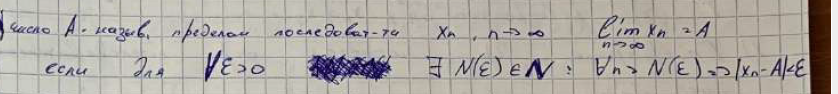 число А - назыв. пределом последоват-ти xₙ, n→∞ lim xₙ = A n→∞
если для ∀ε>0 ∃ N(ε)∈N : ∀n > N(ε) => |xₙ-A|<ε